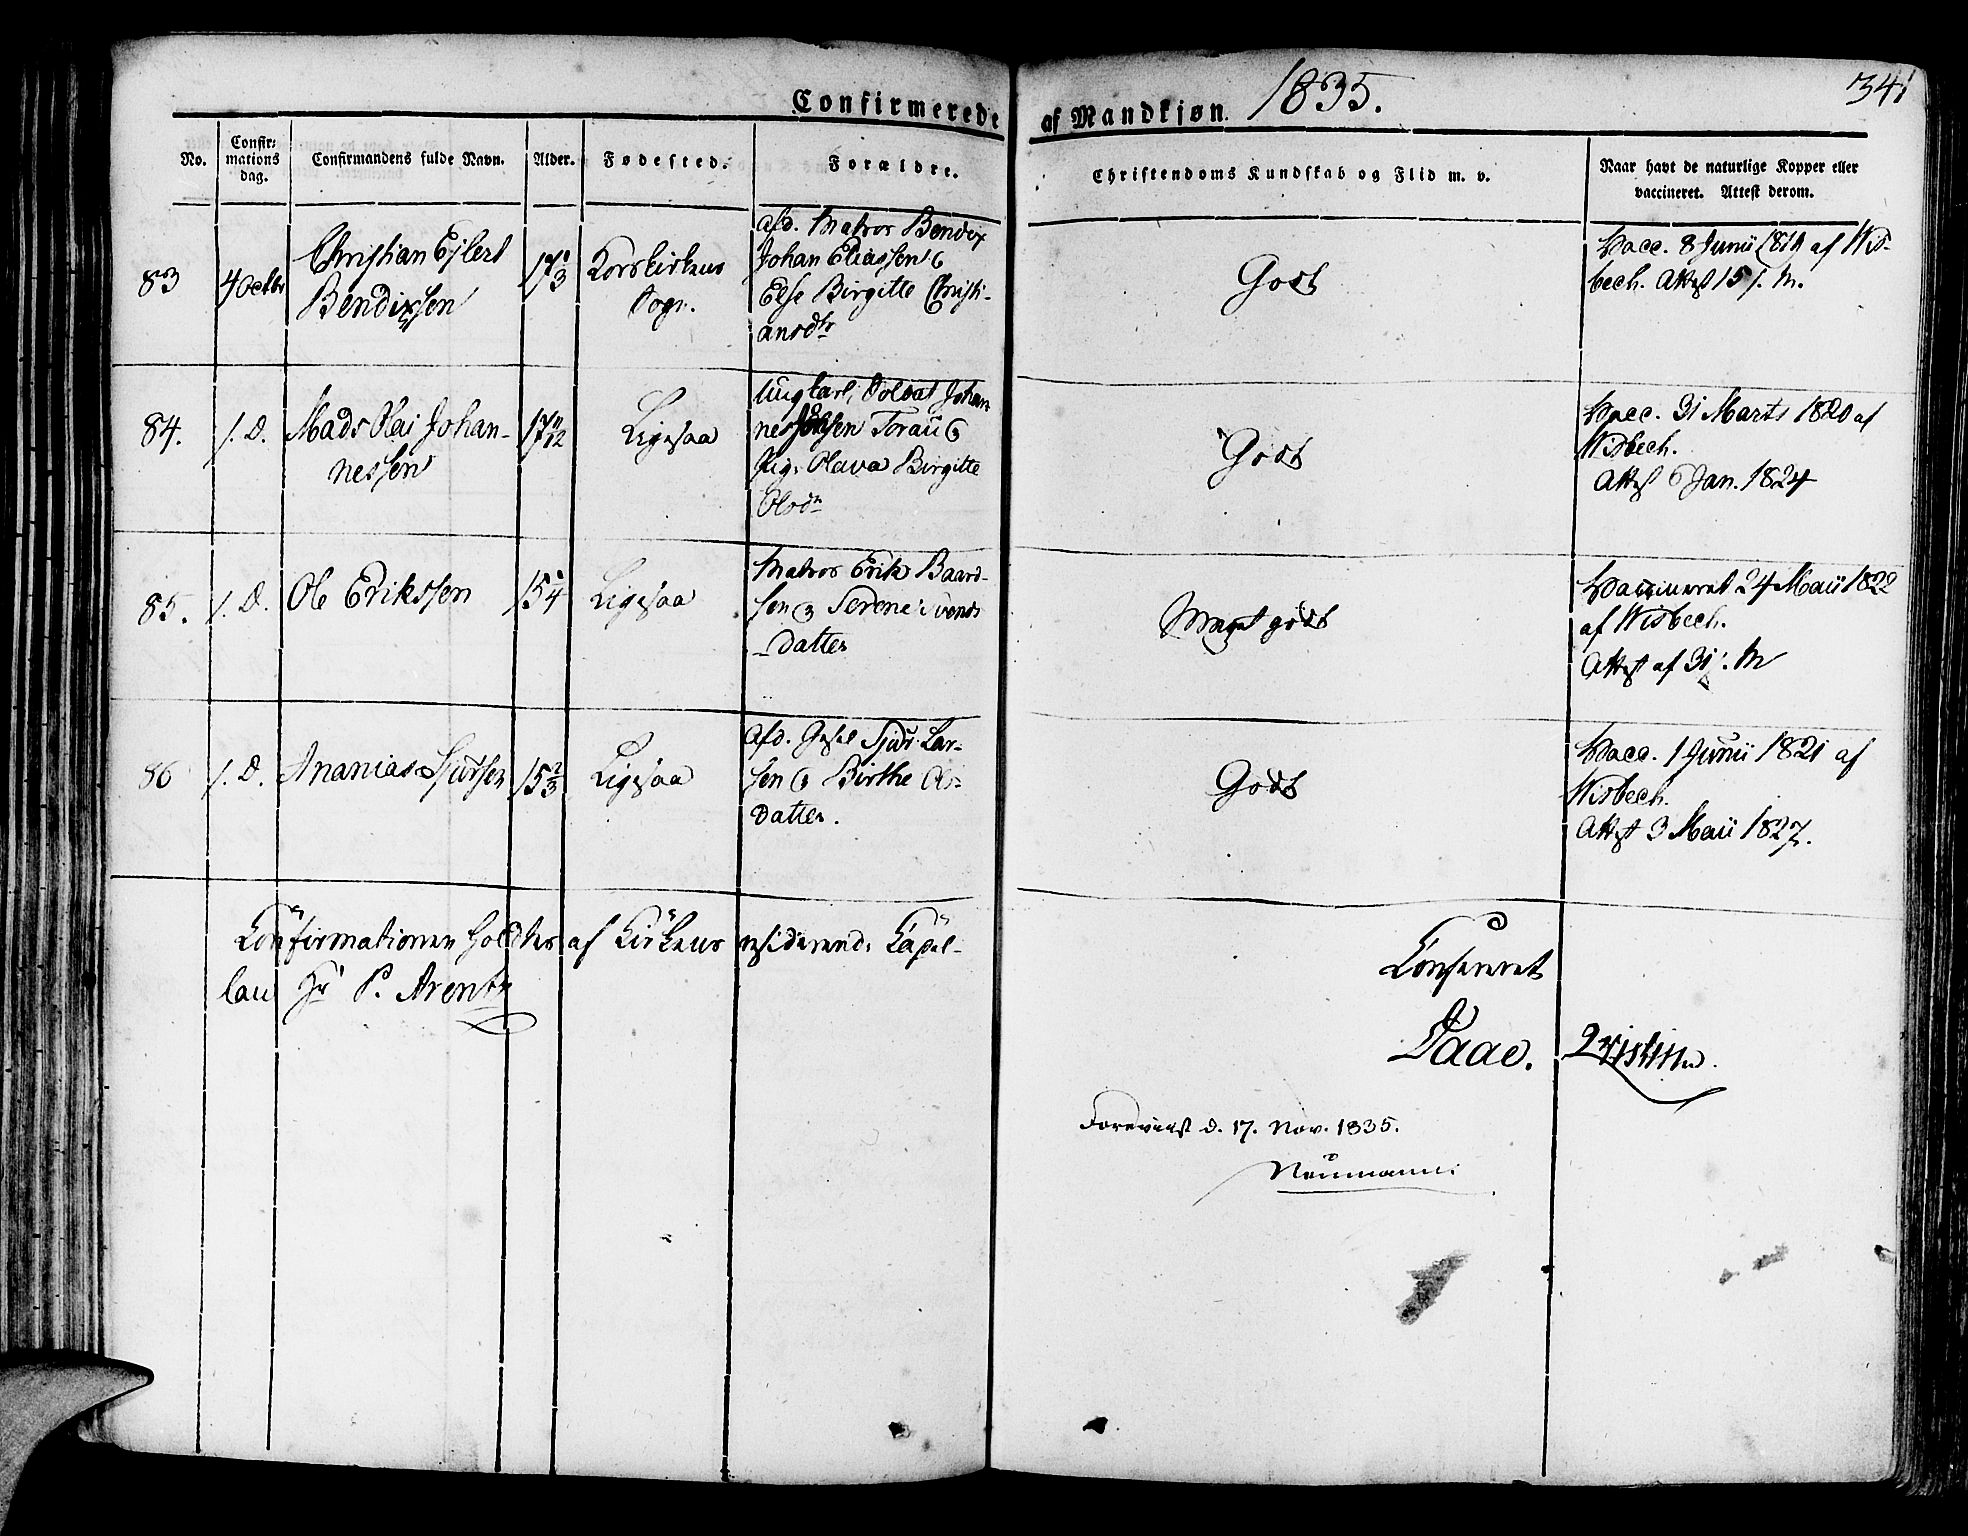 Confirmerede af Mandkjøn. 1835.
341
No.
Confir-
mations
dag.
Confirmandens fulde Navn.
Alder.
Fødested.
Forældre.
Christendoms Kundskab og Flid m. v.
Naar havt de naturlige Kopper eller
vaccineret. Attest derom.
83
4 Octbr
Christian Ejlert
Bendixsen
17 1/3
Korskirkens
Sogn.
Afd. Matros Bendix
Johan Eliassen &
Else Birgitte Christi-
ansdtr
Godt
Vacc. 8 Junii 1819 af Wis-
bech. Attest 15 s. M.
84.
s. D.
Mads Olai Johan-
nessen
17 11/12
Ligesaa
Ungkarl, Soldat Johan
Torau &
Pig. Olava Birgitte
Olsdr
Godt
Vacc. 31 Marts 1820 af
Wisbech.
Attest 6 Jan. 1824
85.
s. D.
Ole Erikssen
15 1/4
Ligesaa
Matros Erik Baard-
sen & Serene Svends
-datter
Meget godt
Vaccineret 24 Maii 1822
af Wisbech.
Attest af 31 s. M
86
s. D.
Ananias Sjursen
15 2/3
Ligesaa
Afd. Sjur Lar-
sen & Birthe As-
datter.
Godt
Vacc. 1 Junii 1821 af
Wisbech.
Attest 3 Maii 1827.
Confirmationen holdtes af Kirkens residerende Capel-
lan Hr P. Arentz
Confereret
Daae. Qvistin
Foreviist d. 17. Nov. 1835.
Neumann.